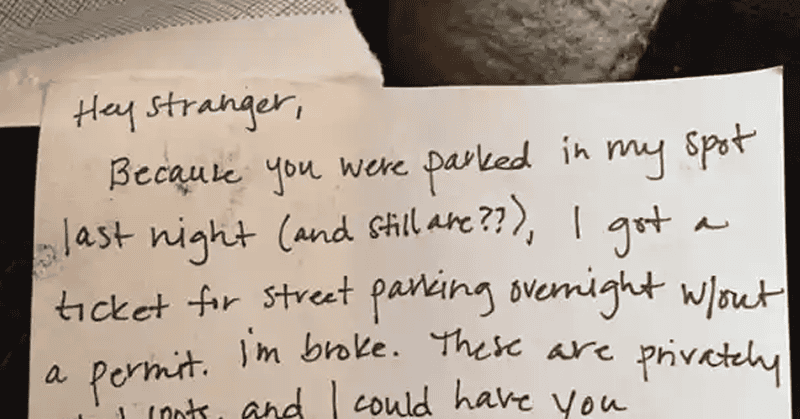 Hey stranger,
Because you were parked in my spot
last night (and still are??), I got a
ticket for street parking overnight w/out
a permit. I'm broke. These are privately
spots, and I could have you